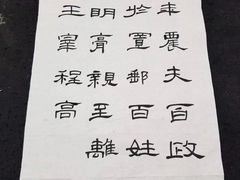 年農夫百政
於置郵百姓
明膏親至離
王宰程高